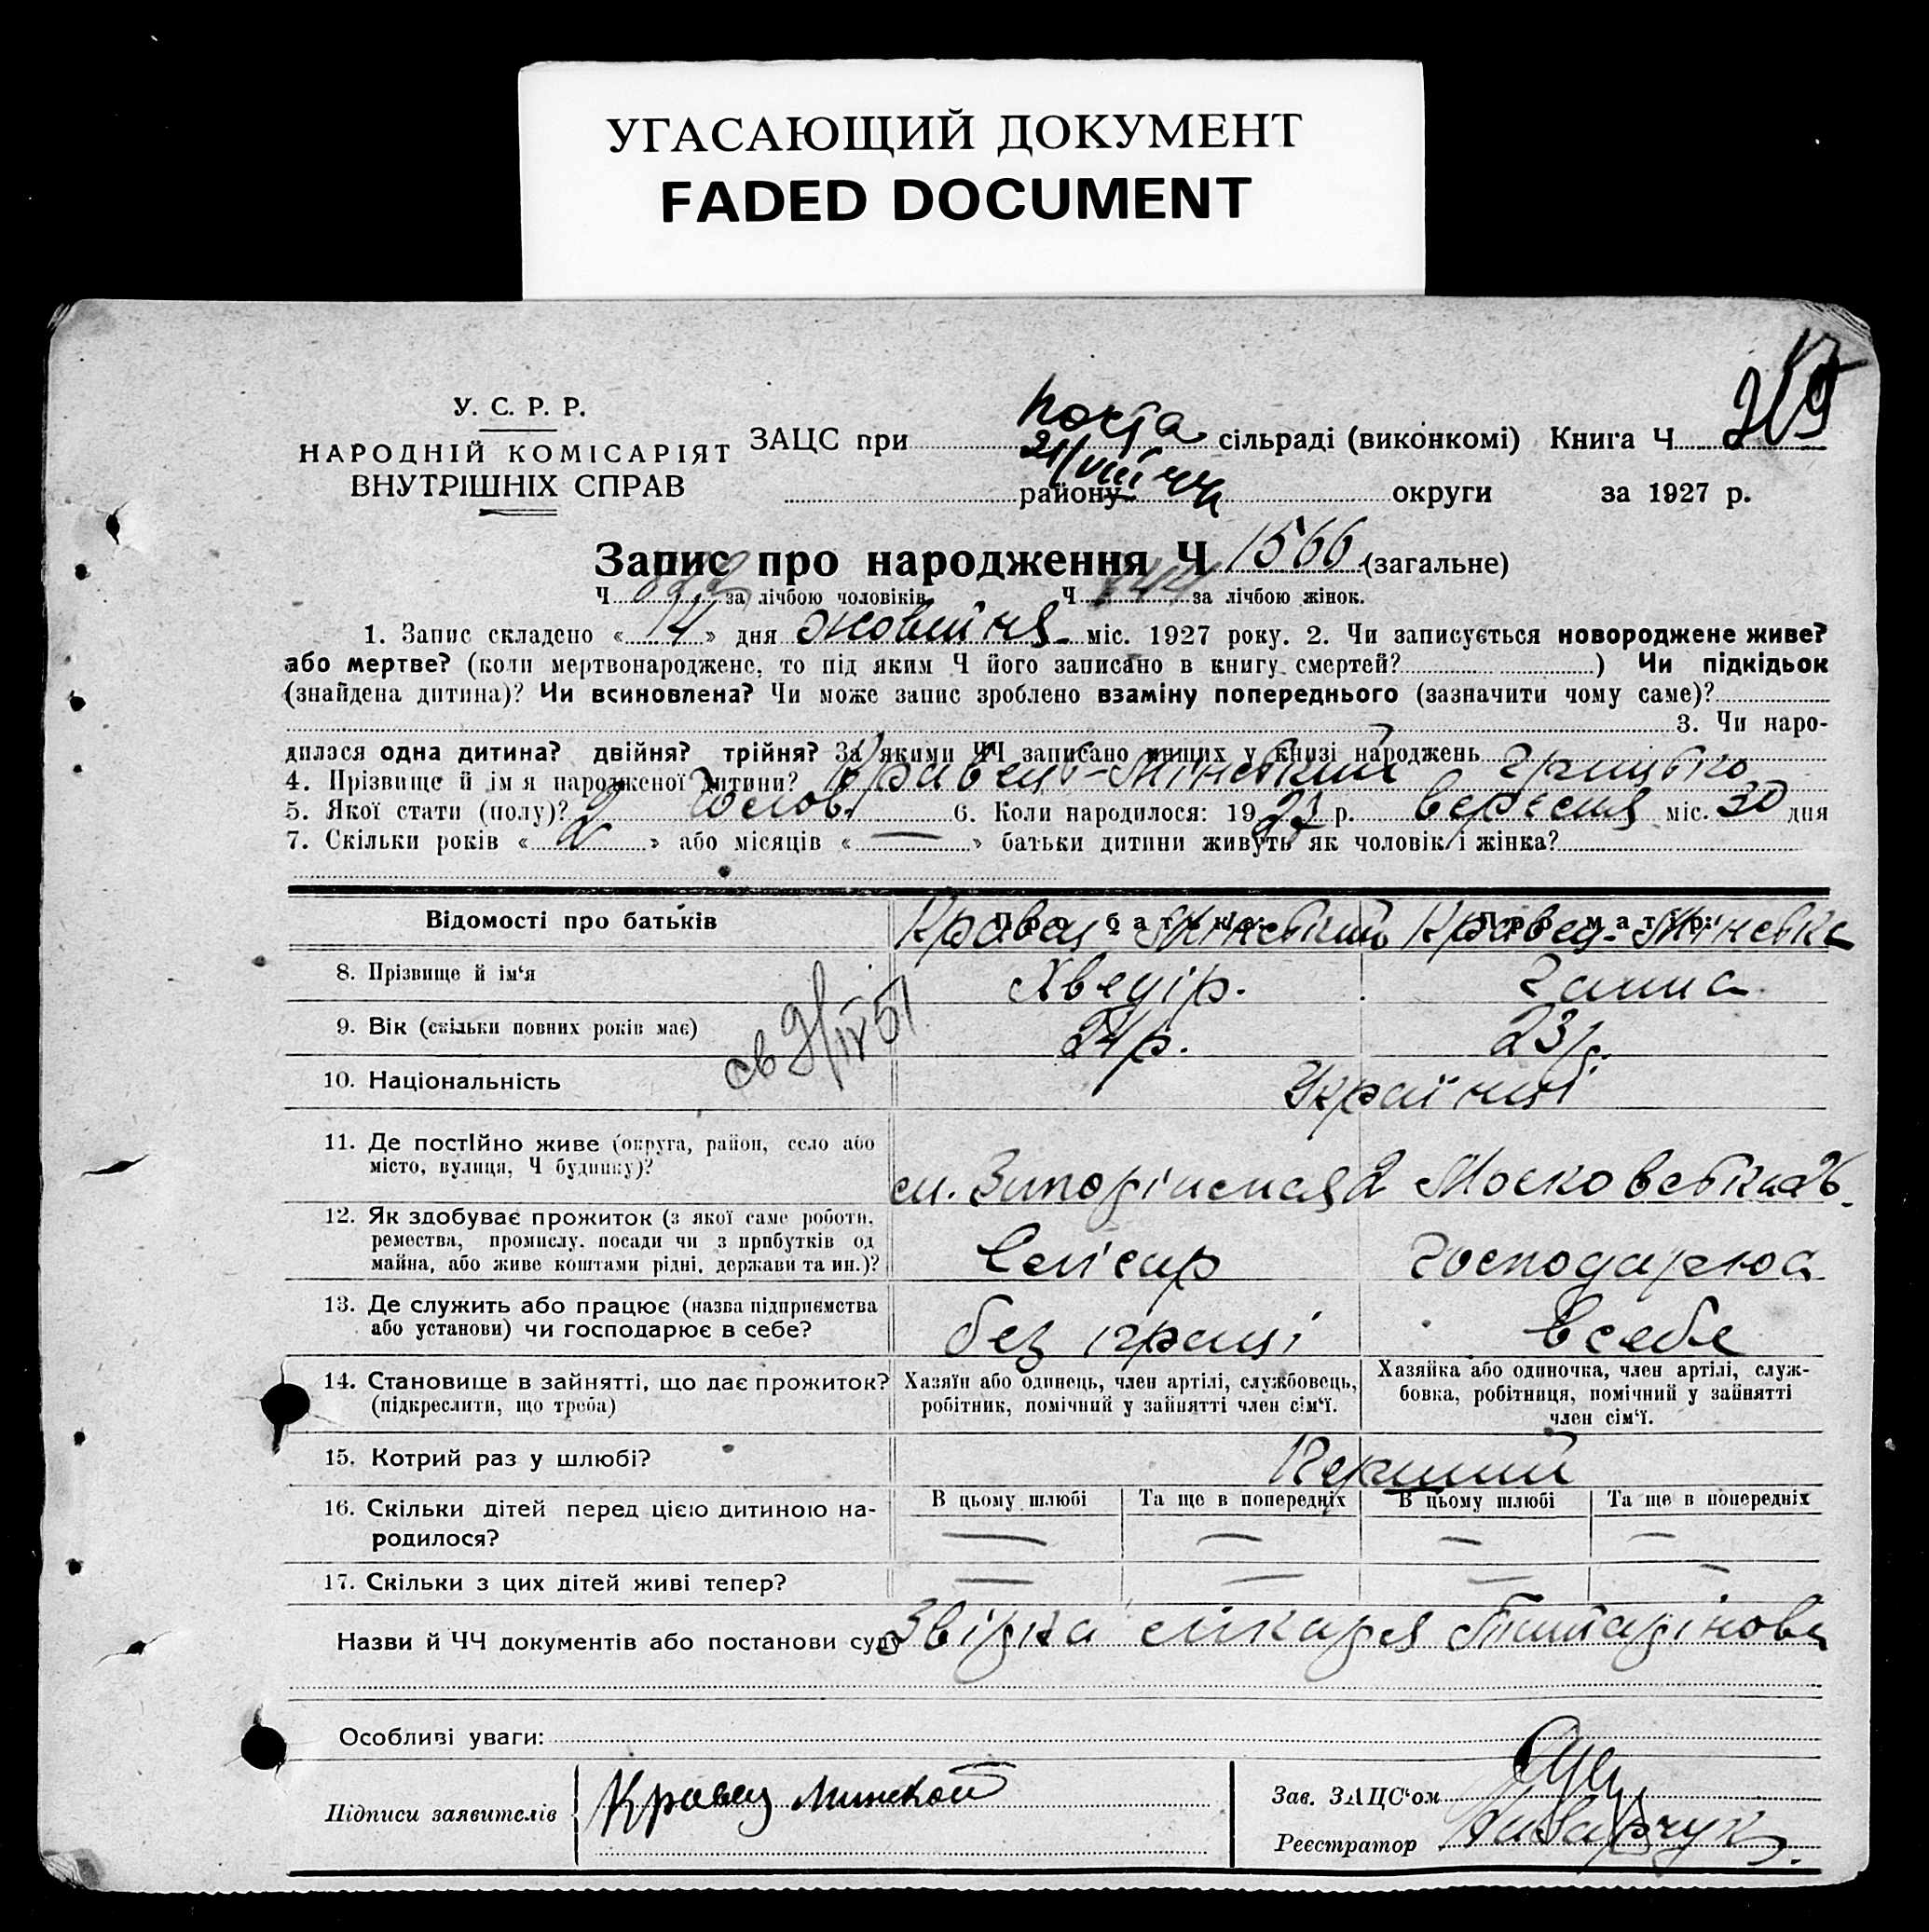 УГАСАЮЩИЙ ДОКУМЕНТ
FADED DOCUMENT
У. С. Р. Р.
НАРОДНІЙ КОМІСАРІЯТ
ВНУТРІШНІХ СПРАВ
ЗАЦС при сільраді (виконкомі) Книга Ч
району округи за 1927 р.
Запис про народження Ч 1566 (загальне)
Ч за лічбою чоловіків. Ч за лічбою жінок.
1. Запис складено « 14 » дня жовтня міс. 1927 року. 2. Чи записується новороджене живе?
або мертве? (коли мертвонароджене, то під яким Ч його записано в книгу смертей? ) Чи підкідьок
(знайдена дитина)? Чи всиновлена? Чи може запис зроблено взаміну попереднього (зазначити чому саме)?
3. Чи наро-
дилася одна дитина? двійня? трійня? За якими ЧЧ записано инших у книзі народжень
4. Прізвище й ім я народженої дитини? Кравець-Мінський Грицько
5. Якої стати (полу)? Чолов. 6. Коли народилося: 1927 р. вересня міс. 30 дня
7. Скільки років « 2 » або місяців « — » батьки дитини живуть як чоловік і жінка?
Відомості про батьків Про батька: Про матір:
Кравец-Мінський Кравец-Мінська
8. Прізвище й ім'я Хведір. Ганна
9. Вік (скільки повних років має) 24 р. 23 р.
10. Національність Українці
11. Де постійно живе (округа, район, село або
місто, вулиця, Ч будинку)?
2 Московська 26.
12. Як здобуває прожиток (з якої саме роботи,
ремества, промислу, посади чи з прибутків од
майна, або живе коштами рідні, держави та ин.)?
Слюсар Господарює
13. Де служить або працює (назва підприємства
або установи) чи господарює в себе?
без праці в себе
14. Становище в зайнятті, що дає прожиток?
(підкреслити, що треба)
Хазяїн або одинець, член артілі, службовець,
робітник, помічний у зайнятті член сім'ї.
Хазяйка або одиночка, член артілі, служ-
бовка, робітниця, помічний у зайнятті
член сім'ї.
15. Котрий раз у шлюбі? Перший
16. Скільки дітей перед цією дитиною на-
родилося?
В цьому шлюбі Та ще в попередніх В цьому шлюбі Та ще в попередніх
— — — —
17. Скільки з цих дітей живі тепер? — — — —
Назви й ЧЧ документів або постанови суду
Особливі уваги:
Підписи заявителів Кравец Минской
Зав. ЗАЦС'ом
Реєстратор